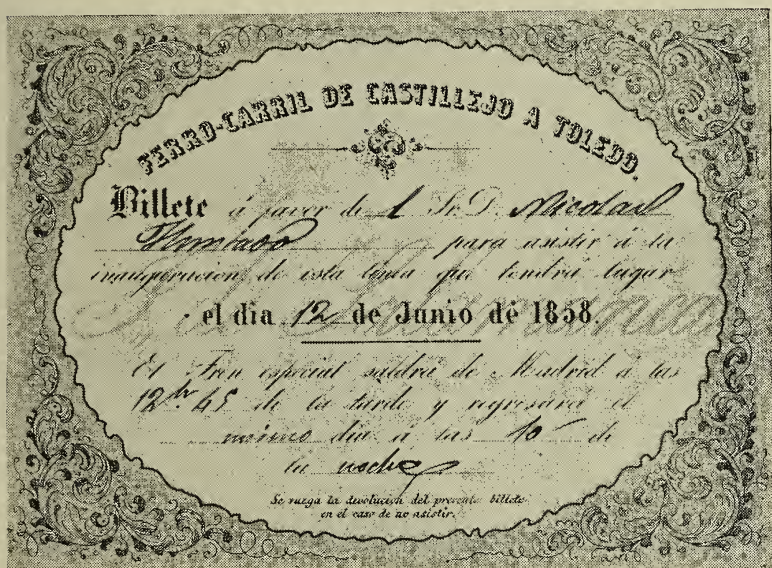 FERRO-CARRIL DE CASTILLEJO A TOLEDO.
Billete á favor de l Sr. D. Nicolas
Hurtado para asistir á la
inauguracion de esta linea que tendrá lugar
el dia 12 de Junio de 1858.
El Tren especial saldrá de Madrid á las
12 hs 45 de la tarde y regresará el
mismo dia á las 10 de
la noche
Se ruega la devolucion del presente billete
en el caso de no asistir.